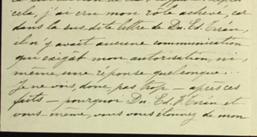 cela, j'ai cru mon rôle achevé, car
dans la sus dite lettre de Dr. Ed. Toran,
il n'y avait aucune communication
qui exigât mon autorisation, ni,
même une réponse quelconque...
Je ne vois donc pas trop – après ces
faits – pourquoi Dr. Ed. T. Toran et
vous-même, vous vous étonnez de mon